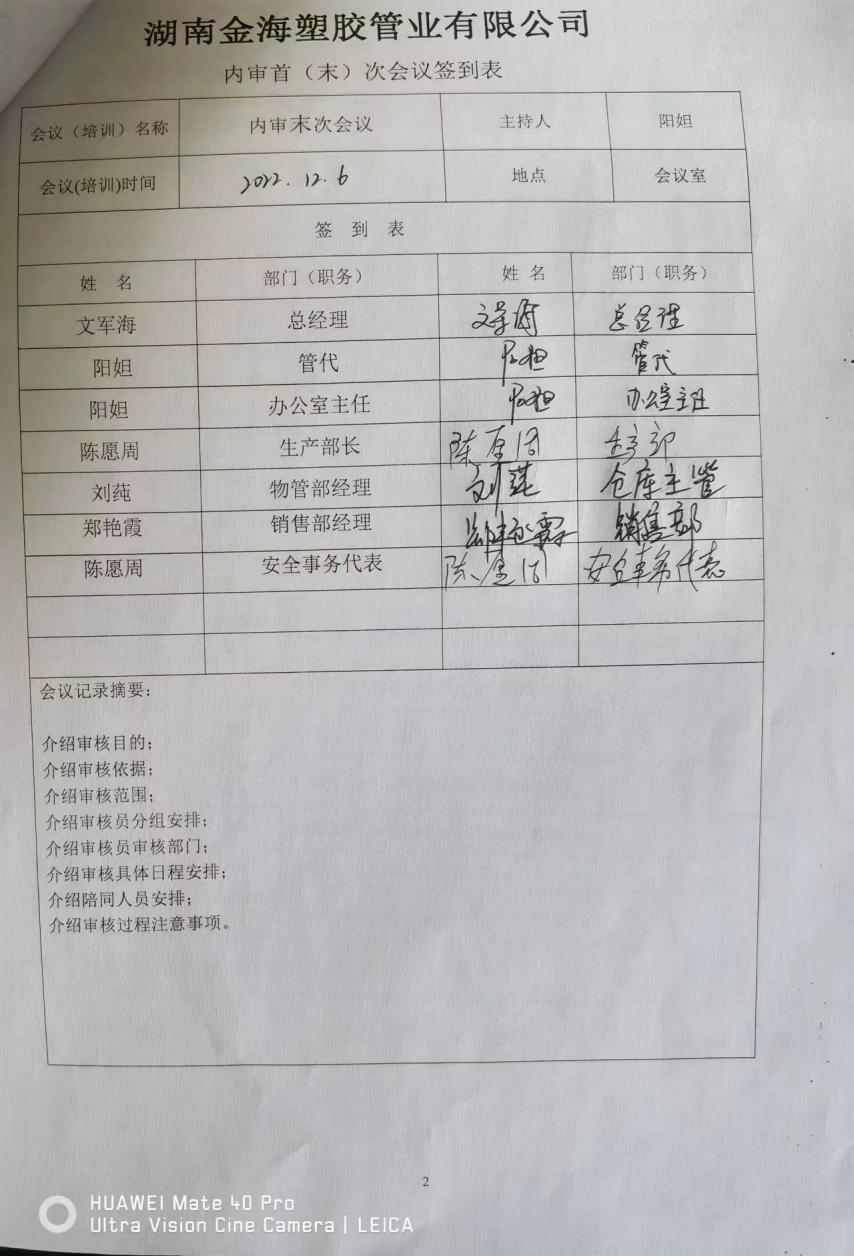 湖南金海塑胶管业有限公司
内审首（末）次会议签到表
会议（培训）名称 内审末次会议 主持人 阳妲
会议(培训)时间 2022.12.6 地点 会议室
签 到 表
姓 名 部门（职务） 姓 名 部门（职务）
文军海 总经理 文军海 总经理
阳妲 管代 阳妲 管代
阳妲 办公室主任 阳妲 办公室主任
陈愿周 生产部长 陈愿周 生产部
刘莼 物管部经理 刘莼 仓库主管
郑艳霞 销售部经理 郑艳霞 销售部
陈愿周 安全事务代表 陈愿周 安全事务代表
会议记录摘要：
介绍审核目的；
介绍审核依据；
介绍审核范围；
介绍审核员分组安排；
介绍审核员审核部门；
介绍审核具体日程安排；
介绍陪同人员安排；
介绍审核过程注意事项。
2
HUAWEI Mate 40 Pro
Ultra Vision Cine Camera | LEICA